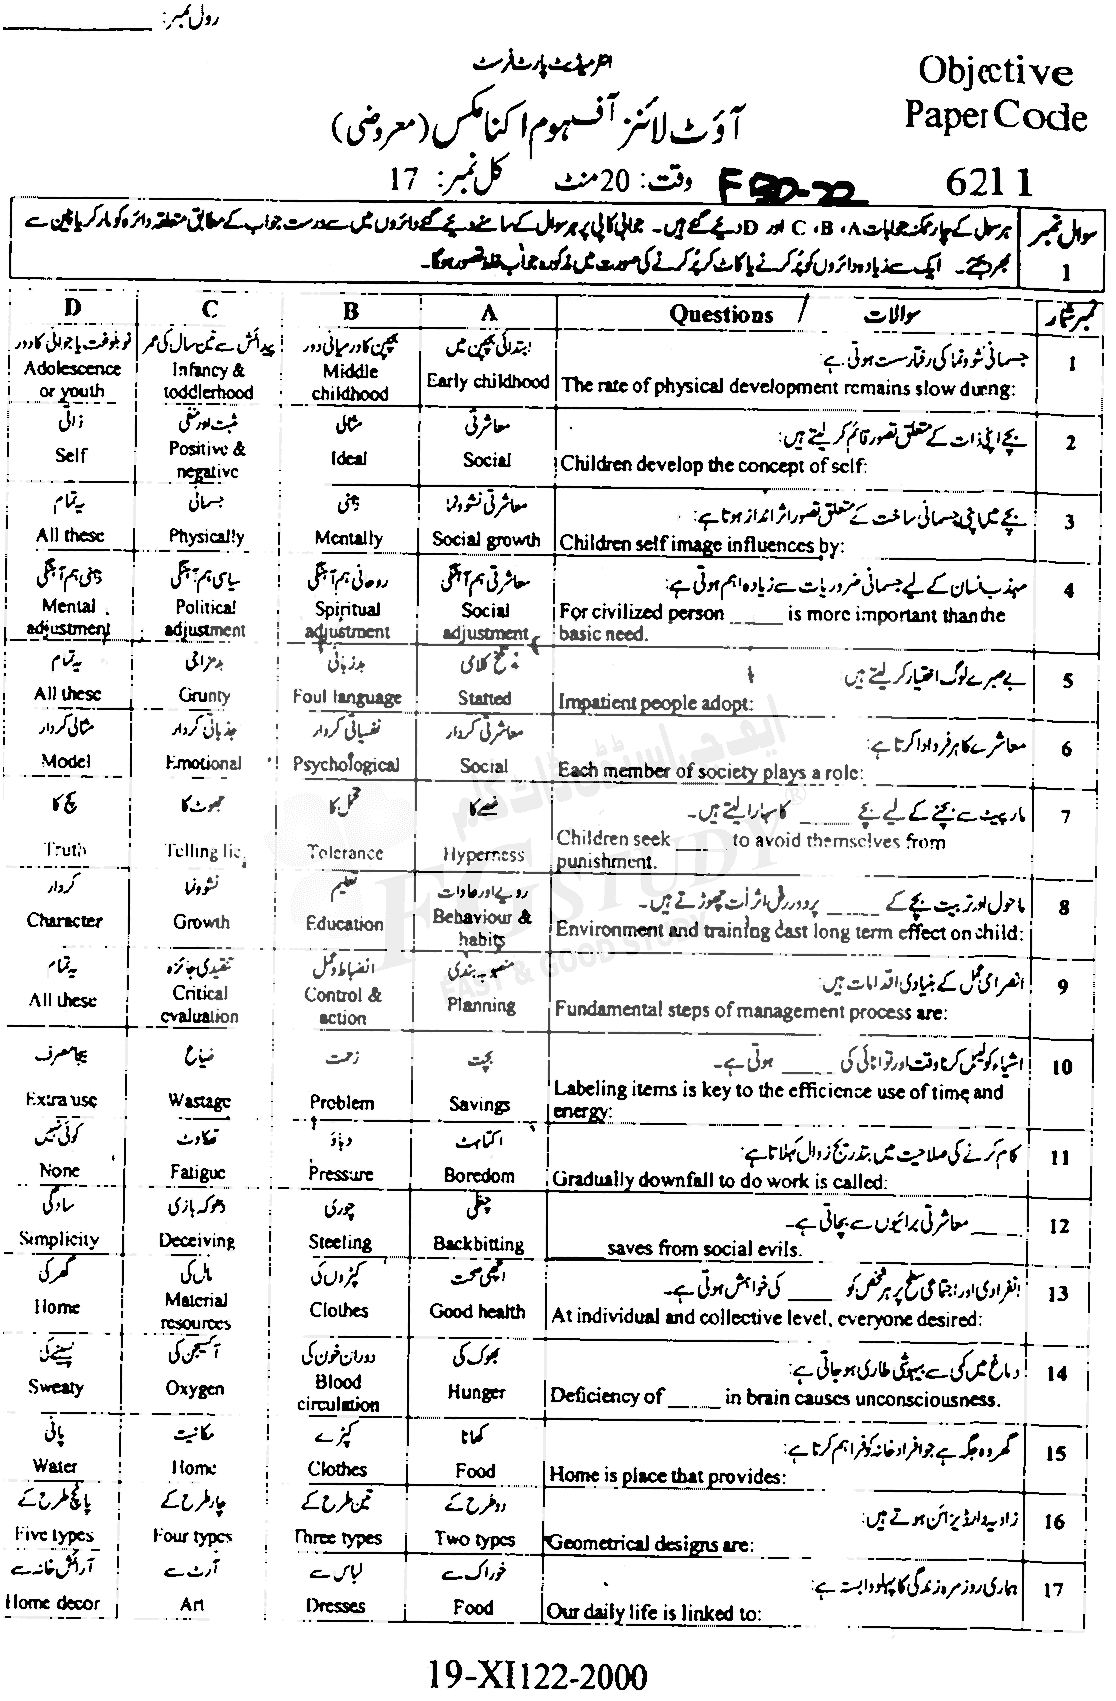 رول نمبر: ________
انٹرمیڈیٹ پارٹ فرسٹ
Objective
Paper Code
آؤٹ لائنز آف ہوم اکنامکس (معروضی)
وقت: 20 منٹ کل نمبر: 17
FBD-22
6211
سوال نمبر 1
ہر سوال کے چار ممکنہ جوابات A، B، C اور D دیئے گئے ہیں۔ جوابی کاپی پر ہر سوال کے سامنے دیئے گئے دائروں میں سے درست جواب کے مطابق متعلقہ دائرہ کو مارکر یا پین سے
بھر دیجئے۔ ایک سے زیادہ دائروں کو پُر کرنے یا کاٹ کر پُر کرنے کی صورت میں مذکورہ جواب غلط تصور ہوگا۔
D C B A Questions / سوالات نمبر شمار
1 جسمانی نشوونما کی رفتار سست ہوتی ہے:
The rate of physical development remains slow durng:
ابتدائی بچپن میں
Early childhood
بچپن کا درمیانی دور
Middle childhood
پیدائش سے تین سال کی عمر
Infancy & toddlerhood
نوبلوغت یا جوانی کا دور
Adolescence or youth
2 بچے اپنی ذات کے متعلق تصور قائم کر لیتے ہیں:
Children develop the concept of self:
معاشرتی
Social
مثالی
Ideal
مثبت اور منفی
Positive & negative
ذاتی
Self
3 بچے میں اپنی جسمانی ساخت کے متعلق تصور اثر انداز ہوتا ہے:
Children self image influences by:
معاشرتی نشوونما
Social growth
ذہنی
Mentally
جسمانی
Physically
یہ تمام
All these
4 مہذب انسان کے لیے جسمانی ضروریات سے زیادہ اہم ہوتی ہے:
For civilized person _____ is more important than the
basic need.
معاشرتی ہم آہنگی
Social adjustment
روحانی ہم آہنگی
Spiritual adjustment
سیاسی ہم آہنگی
Political adjustment
ذہنی ہم آہنگی
Mental adjustment
5 بے صبرے لوگ اختیار کر لیتے ہیں
Impatient people adopt:
تلخ کلامی
Started
بدزبانی
Foul language
بدمزاجی
Grunty
یہ تمام
All these
6 معاشرے کا ہر فرد ادا کرتا ہے:
Each member of society plays a role:
معاشرتی کردار
Social
نفسیاتی کردار
Psychological
جذباتی کردار
Emotional
مثالی کردار
Model
7 مار پیٹ سے بچنے کے لیے بچے _____ کا سہارا لیتے ہیں۔
Children seek _____ to avoid themselves from
punishment.
غصے کا
Hyperness
تحمل کا
Tolerance
جھوٹ کا
Telling lie
سچ کا
Truth
8 ماحول اور تربیت بچے کے _____ پر دور رس اثرات چھوڑتے ہیں۔
Environment and training cast long term effect on child:
رویے اور عادات
Behaviour & habits
تعلیم
Education
نشوونما
Growth
کردار
Character
9 انصرامی عمل کے بنیادی اقدامات ہیں:
Fundamental steps of management process are:
منصوبہ بندی
Planning
انضباط و عمل
Control & action
تنقیدی جائزہ
Critical evaluation
یہ تمام
All these
10 اشیاء کو لیبل کرنا وقت اور توانائی کی _____ ہوتی ہے۔
Labeling items is key to the efficience use of time and
energy:
بچت
Savings
زحمت
Problem
ضیاع
Wastage
بیجا مصرف
Extra use
11 کام کرنے کی صلاحیت میں بتدریج زوال کہلاتا ہے:
Gradually downfall to do work is called:
اکتاہٹ
Boredom
دباؤ
Pressure
تھکاوٹ
Fatigue
کوئی نہیں
None
12 _____ معاشرتی برائیوں سے بچاتی ہے۔
_____ saves from social evils.
چغلی
Backbitting
چوری
Steeling
دھوکہ بازی
Deceiving
سادگی
Simplicity
13 انفرادی اور اجتماعی سطح پر ہر شخص کو _____ کی خواہش ہوتی ہے۔
At individual and collective level, everyone desired:
اچھی صحت
Good health
کپڑوں کی
Clothes
مال کی
Material resources
گھر کی
Home
14 دماغ میں کمی سے بیہوشی طاری ہو جاتی ہے:
Deficiency of _____ in brain causes unconsciousness.
بھوک کی
Hunger
دوران خون کی
Blood circulation
آکسیجن کی
Oxygen
پسینے کی
Sweaty
15 گھر وہ جگہ ہے جو افراد خانہ کو فراہم کرتا ہے:
Home is place that provides:
کھانا
Food
کپڑے
Clothes
مکانیت
Home
پانی
Water
16 زاویہ دار ڈیزائن ہوتے ہیں:
Geometrical designs are:
دو طرح کے
Two types
تین طرح کے
Three types
چار طرح کے
Four types
پانچ طرح کے
Five types
17 ہماری روزمرہ زندگی کا پہلو وابستہ ہے:
Our daily life is linked to:
خوراک سے
Food
لباس سے
Dresses
آرٹ سے
Art
آرائش خانہ سے
Home decor
19-XI122-2000
FG STUDY
FAST & GOOD STUDY